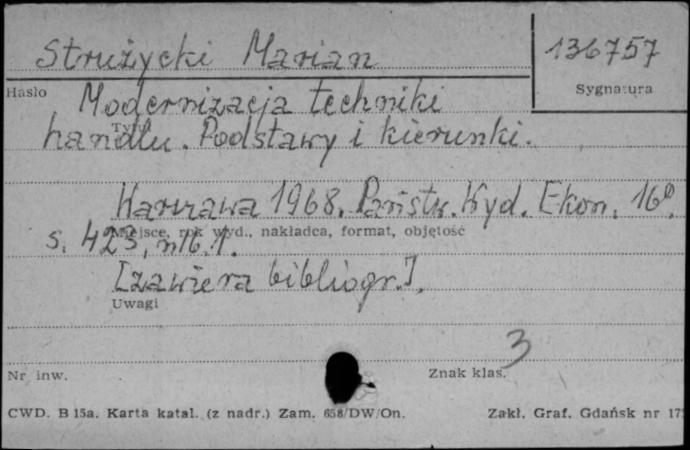 Strużycki Marian
136757
Hasło
Sygnatura
Modernizacja techniki
Tytuł
handlu. Podstawy i kierunki.
Warszawa 1968. Państw. Wyd. Ekon. 16°.
Miejsce, rok wyd., nakładca, format, objętość
s. 423, nlb. 1.
[zawiera bibliogr.].
Uwagi
3
Nr inw.
Znak klas.
CWD. B 15a. Karta katal. (z nadr.) Zam. 658/DW/On.
Zakł. Graf. Gdańsk nr 17